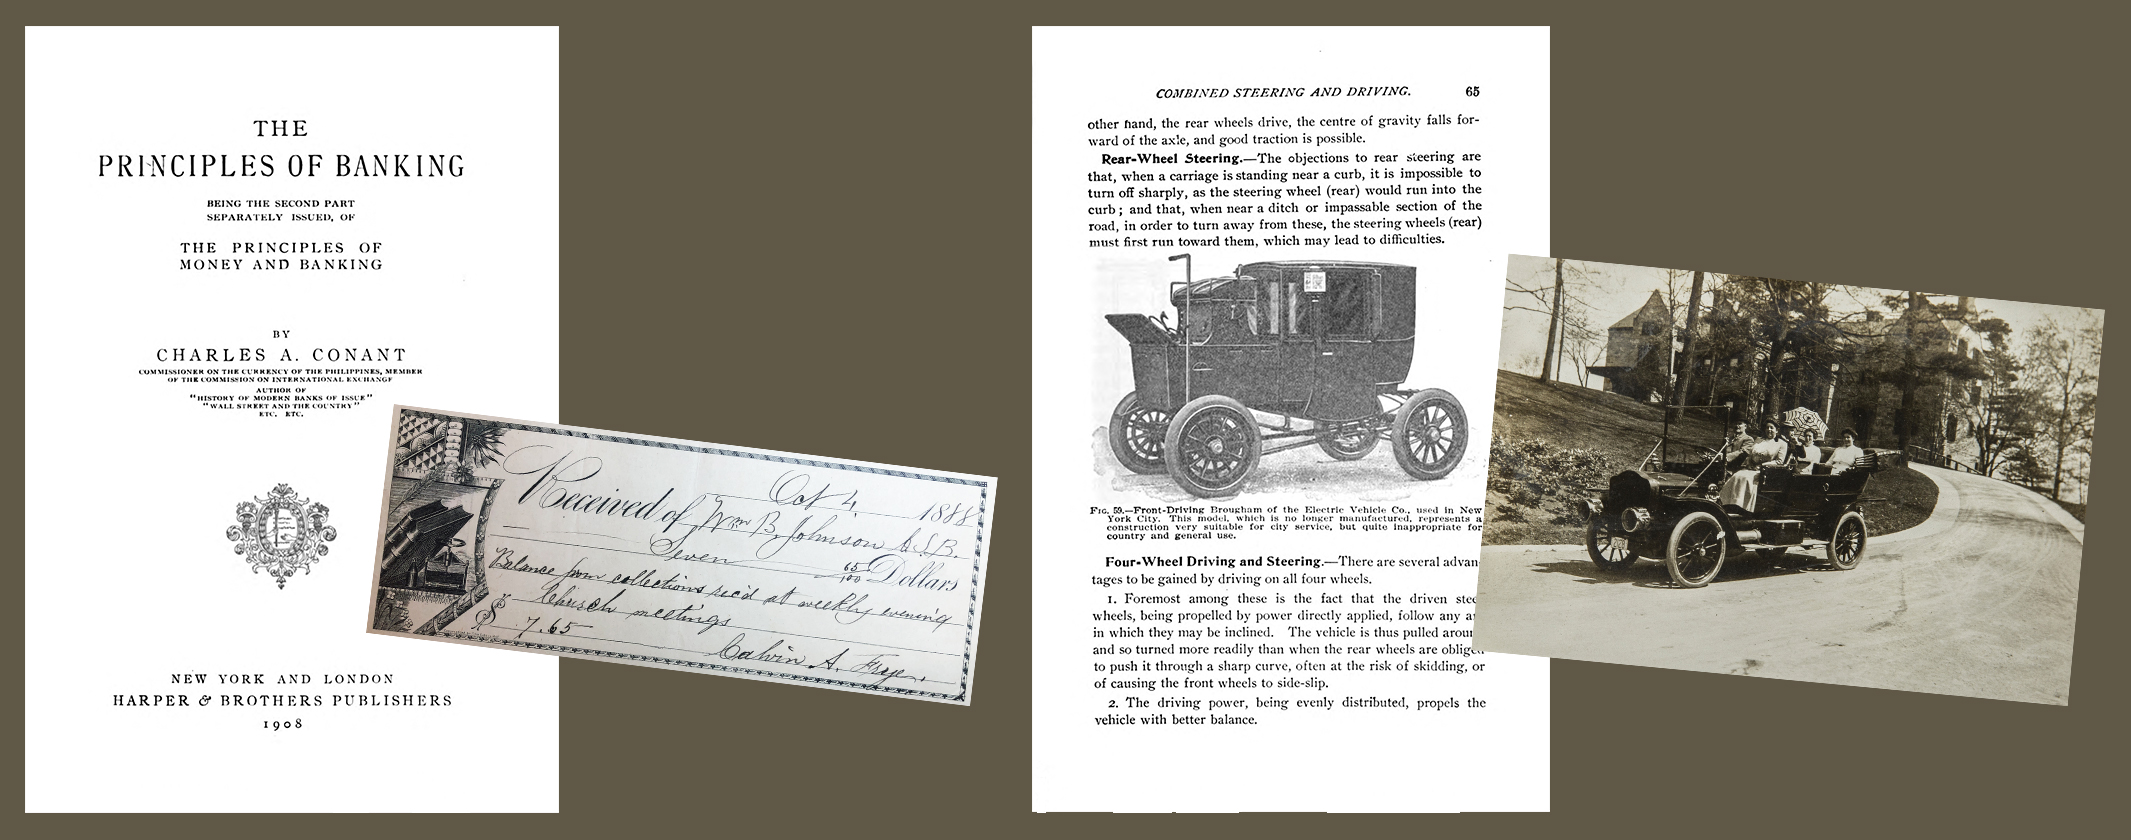 THE
PRINCIPLES OF BANKING
BEING THE SECOND PART
SEPARATELY ISSUED, OF
THE PRINCIPLES OF
MONEY AND BANKING
BY
CHARLES A. CONANT
COMMISSIONER ON THE CURRENCY OF THE PHILIPPINES, MEMBER
OF THE COMMISSION ON INTERNATIONAL EXCHANGE
AUTHOR OF
"HISTORY OF MODERN BANKS OF ISSUE"
"WALL STREET AND THE COUNTRY"
ETC. ETC.
NEW YORK AND LONDON
HARPER & BROTHERS PUBLISHERS
1908
Oct 4, 1888
Received of Wm B. Johnson C.S.B.
Seven 65/100 Dollars
Balance from collections rec'd at weekly evening
Church meetings
$ 7.65
Calvin A. Frye.
COMBINED STEERING AND DRIVING. 65
other hand, the rear wheels drive, the centre of gravity falls for-
ward of the axle, and good traction is possible.
Rear-Wheel Steering.—The objections to rear steering are
that, when a carriage is standing near a curb, it is impossible to
turn off sharply, as the steering wheel (rear) would run into the
curb; and that, when near a ditch or impassable section of the
road, in order to turn away from these, the steering wheels (rear)
must first run toward them, which may lead to difficulties.
FIG. 59.—Front-Driving Brougham of the Electric Vehicle Co., used in New
York City. This model, which is no longer manufactured, represents a
construction very suitable for city service, but quite inappropriate for
country and general use.
Four-Wheel Driving and Steering.—There are several advan
tages to be gained by driving on all four wheels.
1. Foremost among these is the fact that the driven stee
wheels, being propelled by power directly applied, follow any a
in which they may be inclined. The vehicle is thus pulled aroun
and so turned more readily than when the rear wheels are oblige
to push it through a sharp curve, often at the risk of skidding, or
of causing the front wheels to side-slip.
2. The driving power, being evenly distributed, propels the
vehicle with better balance.